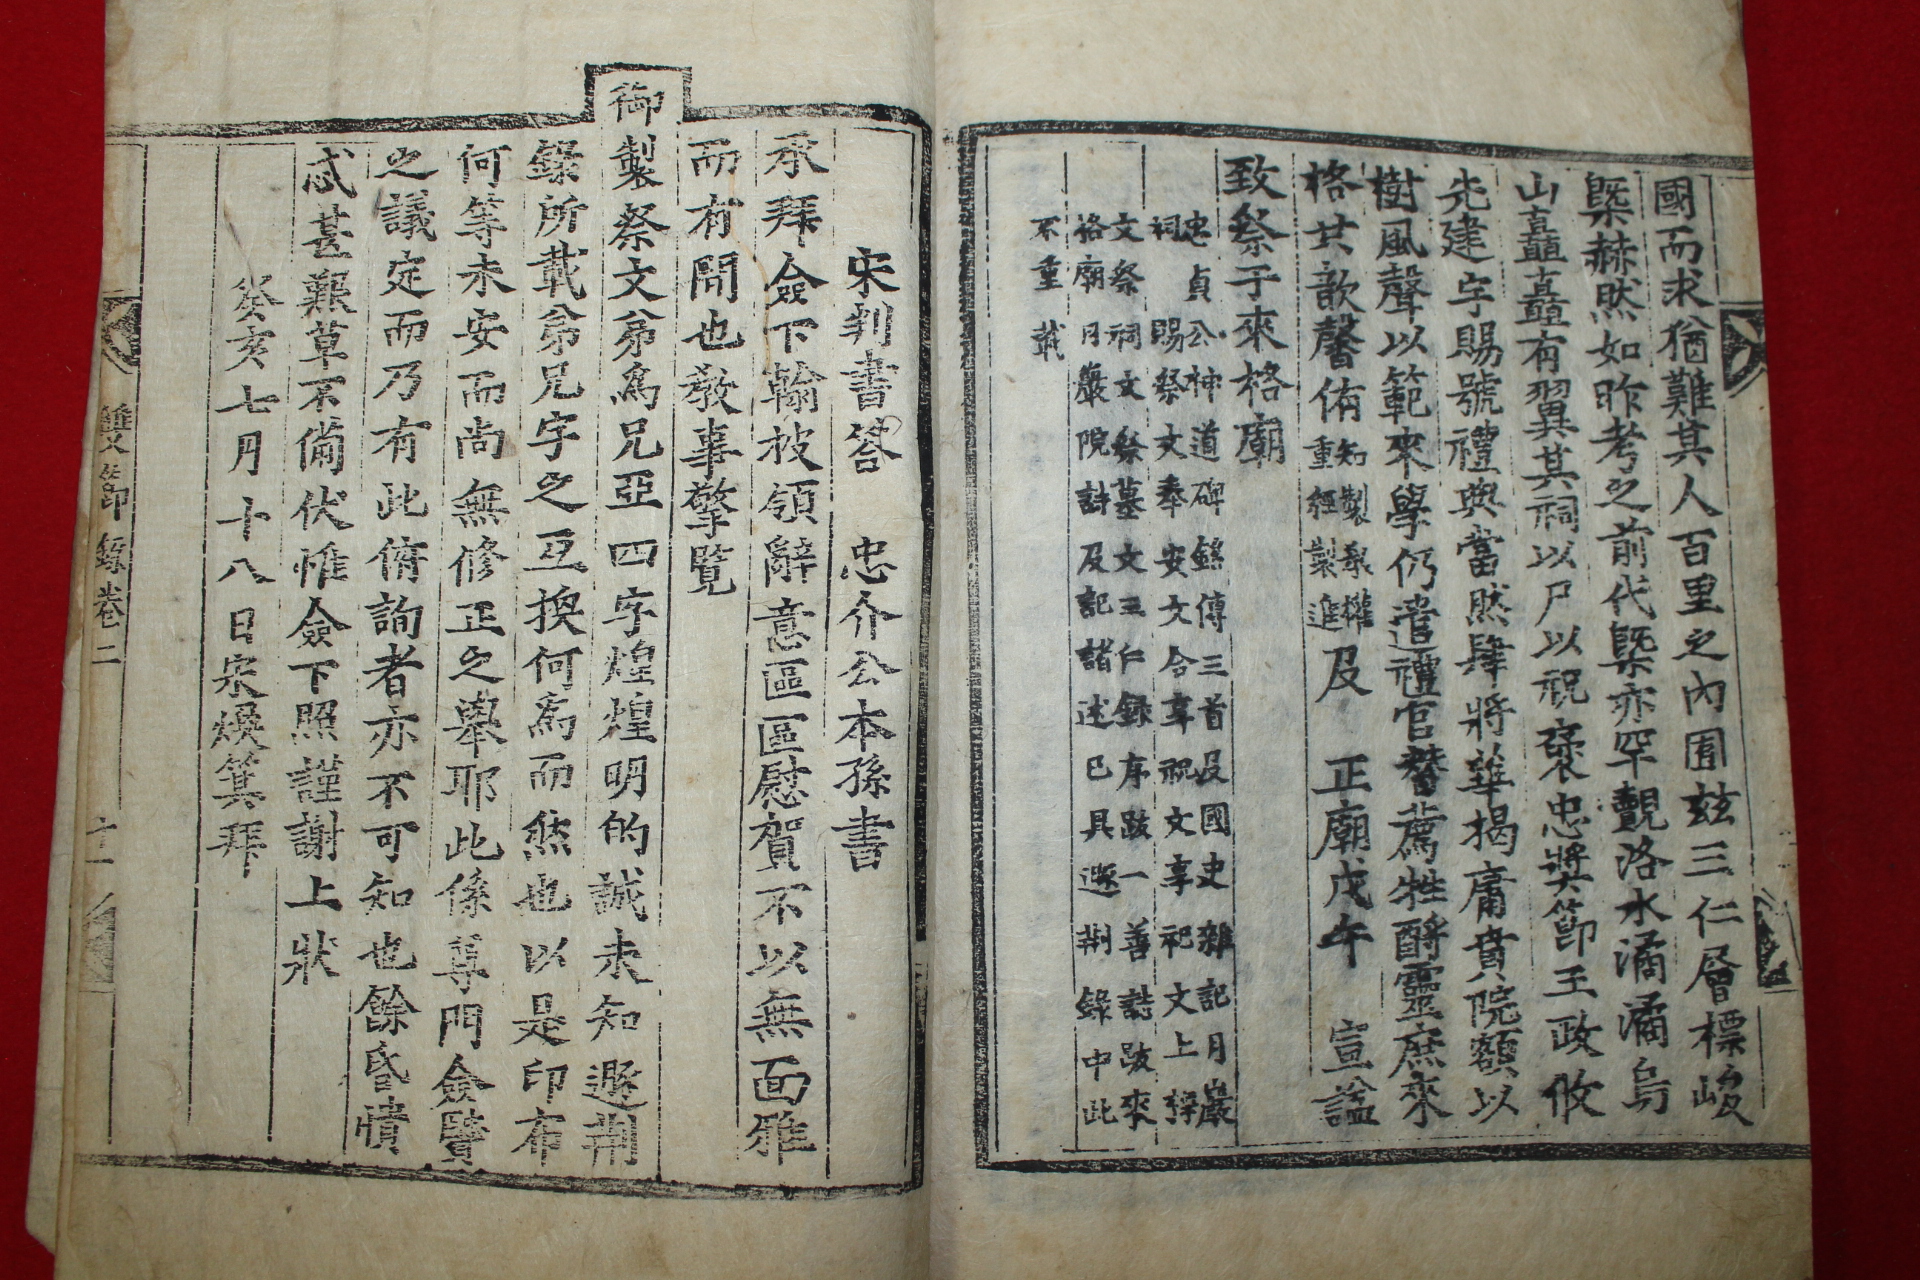 國而求猶難其人百里之內囿玆三仁層標峻
槩赫然如昨考之前代槩亦罕覿洛水潏潏烏
山矗矗有翼其祠以尸以祝褒忠奬節王政攸
先建宇賜號禮典當然肆將華揭庸賁院額以
樹風聲以範來學仍遣禮官替薦牲酹靈庶來
格其歆馨侑知製敎權重經製進及 正廟戊午 宣諡
致祭于來格廟
忠貞公神道碑銘傳三首及國史雜記月巖
祠賜祭文奉安文合享祝文享祀文上
文祭祠文祭墓文三仁錄序跋一善誌跋來
格廟月巖院詩及記諸述已具遯荆錄中此
不重載
宋判書答 忠介公本孫書
承拜僉下翰披領辭意區區慰賀不以無面雅
而有間也敎事擎覽
御製祭文弟爲兄亞四字煌煌明的誠未知遯荆
錄所載弟兄字之互換何爲而然也以是印布
何等未安而尚無修正之擧耶此係尊門僉賢
之議定而乃有此俯詢者亦不可知也餘昏憒
忒甚艱草不備伏惟僉下照謹謝上狀
癸亥七月十八日宋煥箕拜
雙節錄卷二
十一